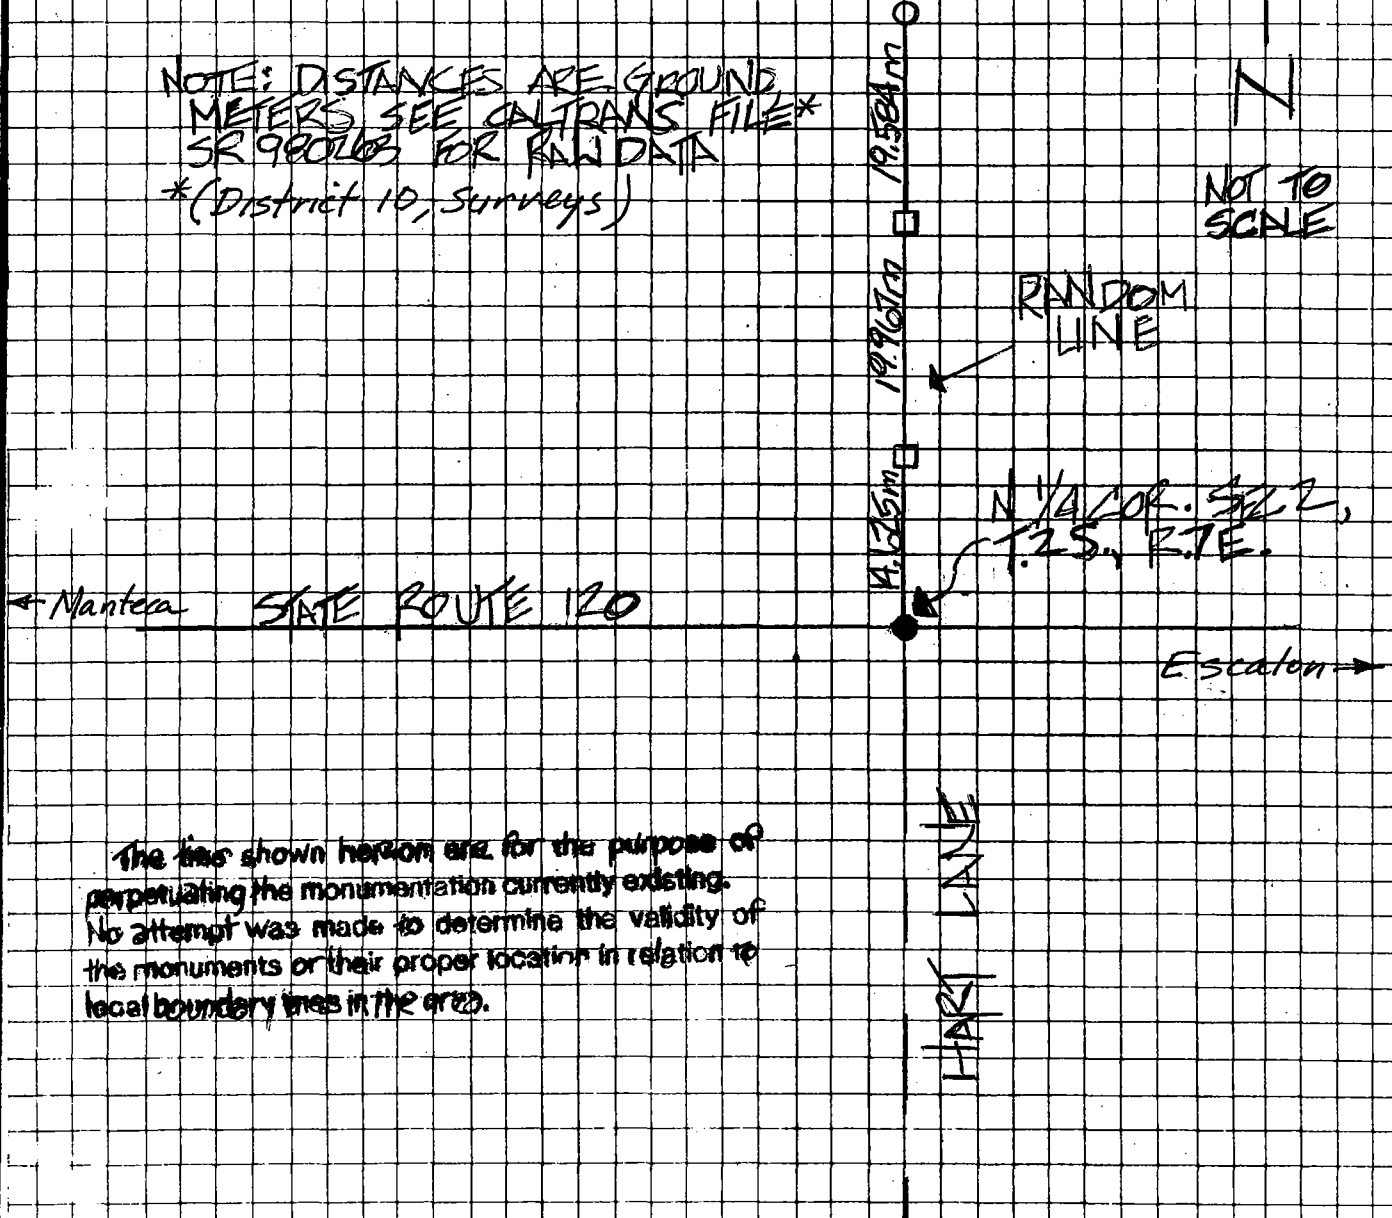 NOTE: DISTANCES ARE GROUND
METERS SEE CALTRANS FILE*
SR 980263 FOR RAW DATA
*(District 10, Surveys)
N
NOT TO
SCALE
19.584m
19.967m
RANDOM
LINE
N 1/4 COR. SEC 2,
T.2S., R.7E.
14.625m
← Manteca
STATE ROUTE 120
Escalon →
The lines shown hereon are for the purpose of
perpetuating the monumentation currently existing.
No attempt was made to determine the validity of
the monuments or their proper location in relation to
local boundary lines in the area.
HART LANE